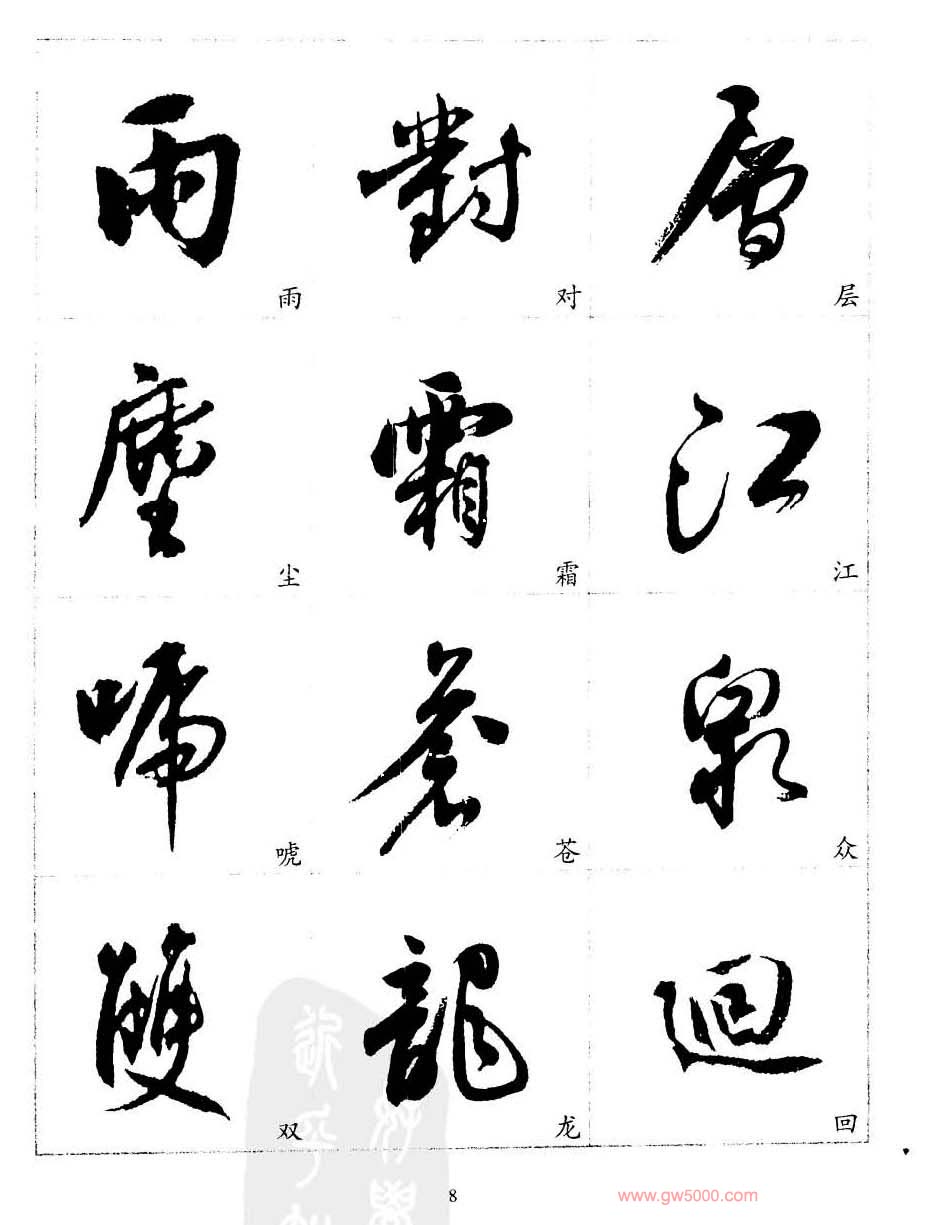 雨 對 層
雨 对 层
塵 霜 江
尘 霜 江
唬 蒼 衆
唬 苍 众
雙 龍 迴
双 龙 回
8
www.gw5000.com